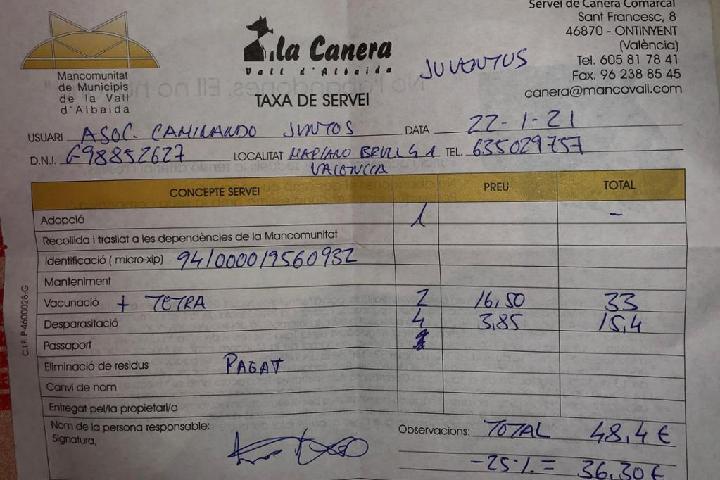 Servei de Canera Comarcal
Sant Francesc, 8
46870 - ONTINYENT
(València)
Tel. 605 81 78 41
Fax. 96 238 85 45
canera@mancovall.com
Mancomunitat
de Municipis
de la Vall
d'Albaida
la Canera
Vall d'Albaida
TAXA DE SERVEI
JUVENTUS
USUARI ASOC. CAMINANDO JUNTOS DATA 22-1-21
D.N.I. G98852627 LOCALITAT MARIANO TEL. 635029757
VALENCIA
CONCEPTE SERVEI PREU TOTAL
Adopció 1 -
Recollida i trasllat a les dependències de la Mancomunitat
Identificació (micro-xip) 941000019560932
Manteniment
Vacunació + TETRA 2 16,50 33
Desparasitació 4 3,85 15,4
Passaport
Eliminació de residus PAGAT
Canvi de nom
Entregat pel/la propietari/a
Nom de la persona responsable: Observacions: TOTAL 48,4 €
Signatura,
-25% = 36,30 €
C.I.F. P-4600026-G